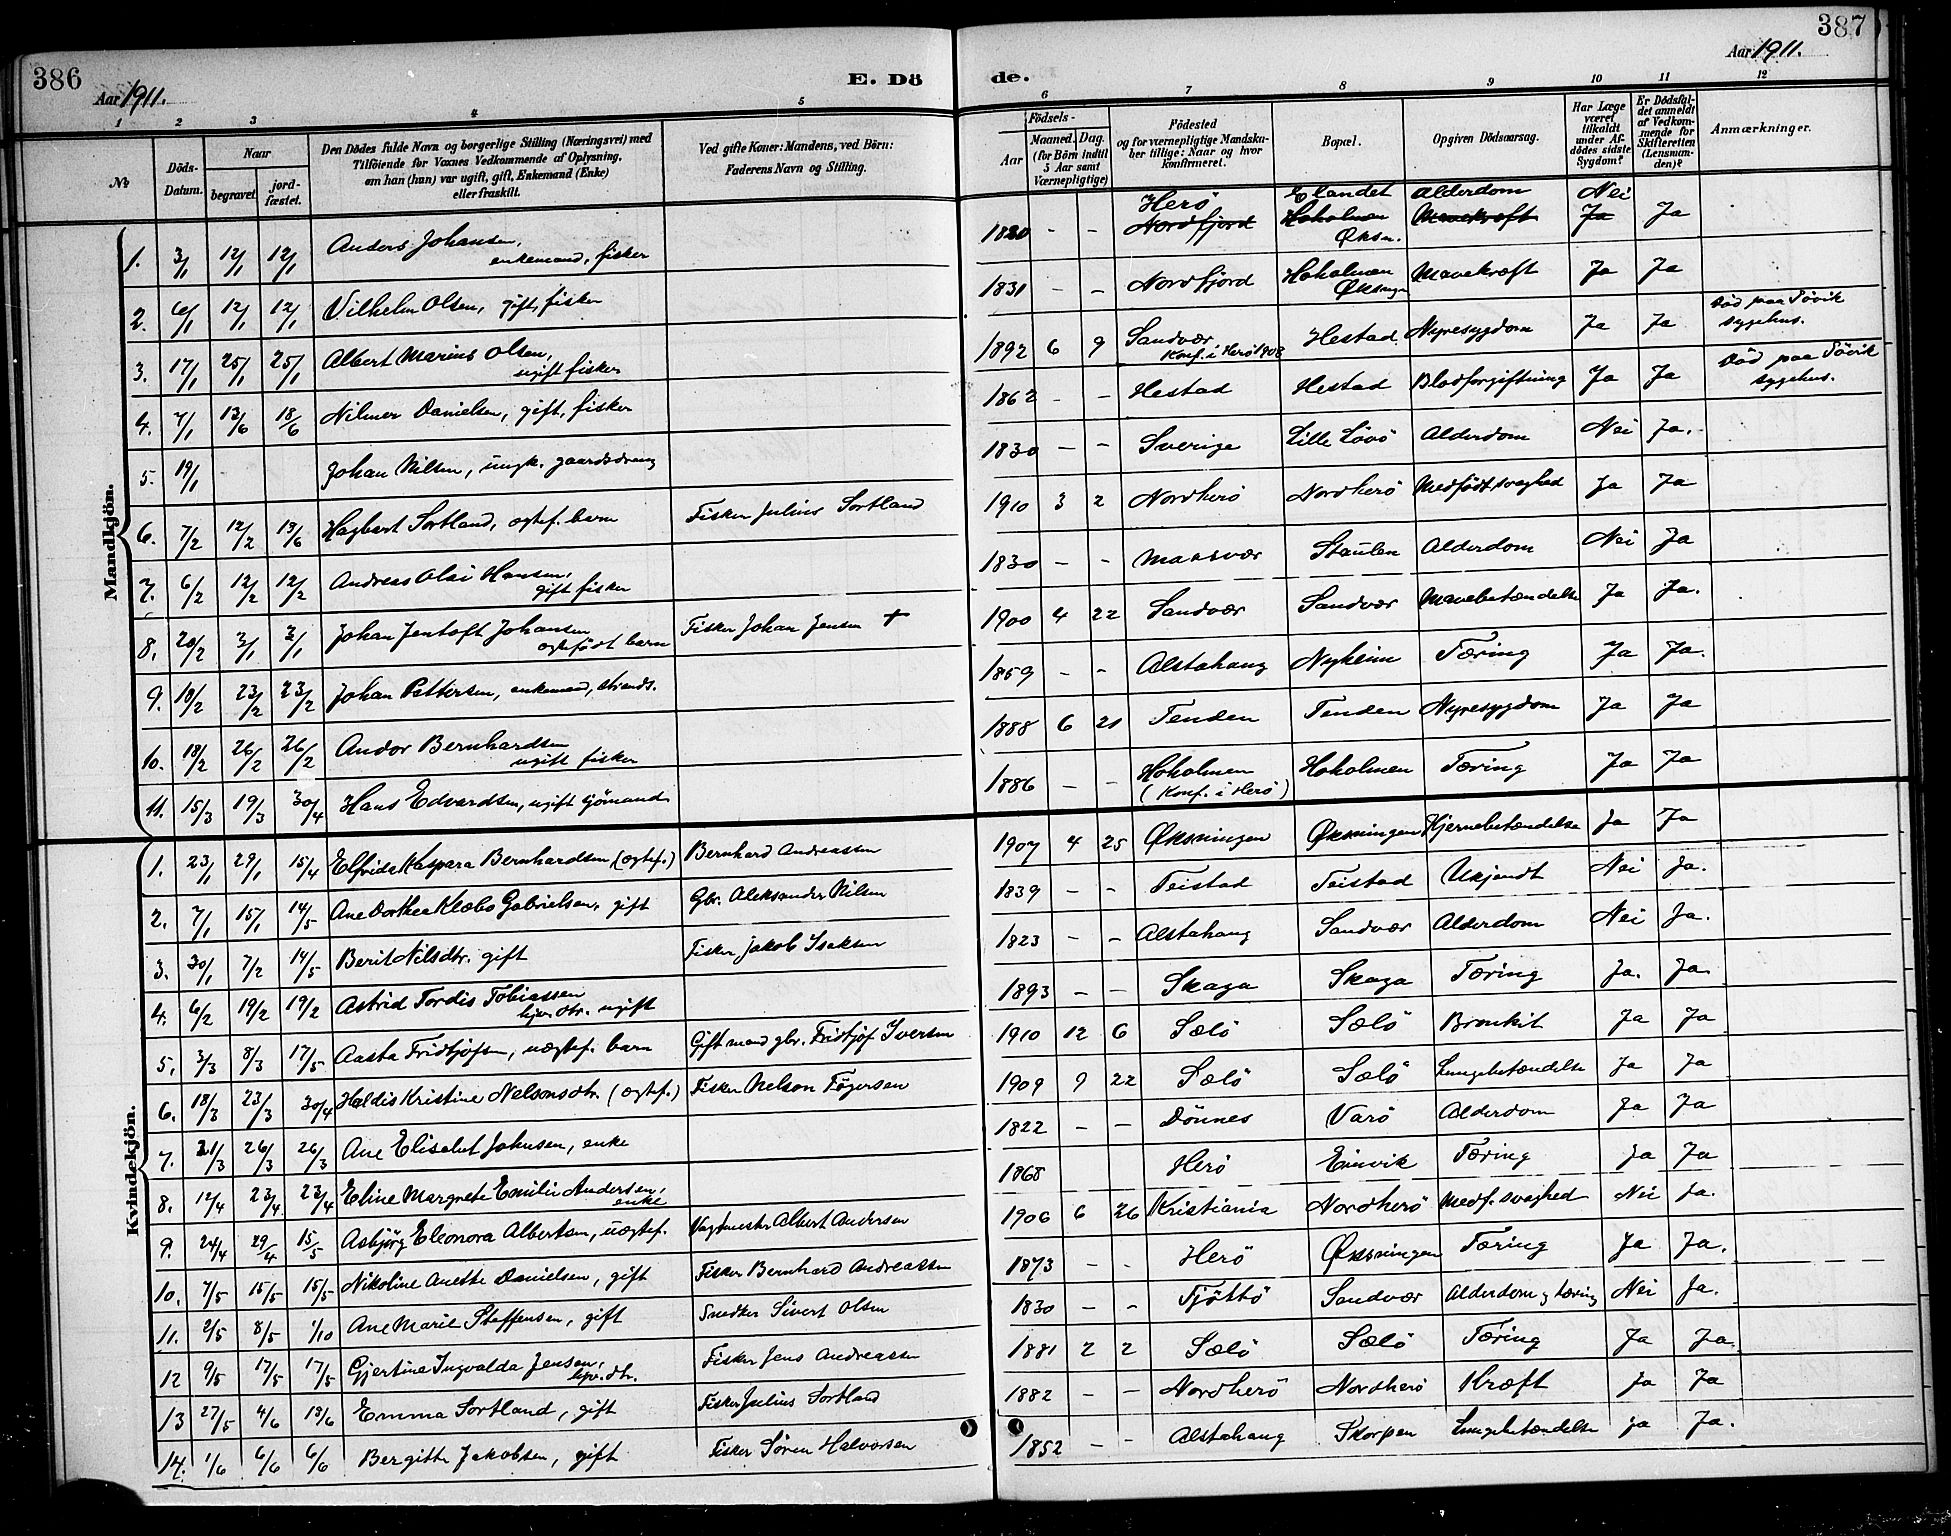 386
Aar 1911.
E. Dö
de.
387
Aar 1911.
1 2 3 4 5
6 7 8 9 10 11 12
№
Döds-Datum.
Naar
begravet.
jord-fæstet.
Den Dödes fulde Navn og borgerlige Stilling (Næringsvei) med
Tilföiende for Voxnes Vedkommende af Oplysning,
om han (hun) var ugift, gift, Enkemand (Enke)
eller fraskilt.
Ved gifte Koner: Mandens, ved Börn:
Faderens Navn og Stilling.
Födsels-
Aar
Maaned.
Dag.
(for Börn indtil 5 Aar samt Værnepligtige)
Födested
og for værnepligtige Mandskaber tillige: Naar og hvor konfirmeret.
Bopæl.
Opgiven Dödsaarsag.
Har Læge været tilkaldt under Afdödes sidste Sygdom?
Er Dödsfaldet anmeldt af Vedkommende for Skifteretten (Lensmanden)?
Anmærkninger.
Mandkjön.
1. 3/1 12/1 12/1 Anders Johansen, enkemand, fisker 1820 - - Herö Nordfjord Elandet Hokolmen Öksn. Alderdom Mavekræft Nei Ja Ja
2. 6/1 12/1 12/1 Vilhelm Olsen, gift, fisker 1831 - - Nordfjord Hokolmen Mavekræft Ja Ja
3. 17/1 25/1 25/1 Albert Marius Olsen, ugift fisker 1892 6 9 Sandvær Konf. i Herö 1908 Hestad Nyresygdom Ja Ja Död paa Sövik sygehus.
4. 7/1 13/6 18/6 Nilmer Danielsen, gift, fisker 1862 - - Hestad Hestad Blodforgiftning Ja Ja Död paa Sövik sygehus.
5. 19/1 Johan Nilsen, ungk. gaardsdreng 1830 - - Sverige Lille Lövö Alderdom Nei Ja.
6. 7/2 12/2 13/6 Hagbart Sortland, egtef. barn Fisker Julius Sortland 1910 3 2 Nordherö Nordherö Medfödt svaghed Ja Ja
7. 6/2 12/2 12/2 Andreas Olai Hansen, gift fisker 1830 - - Maasvær Staulen Alderdom Nei Ja
8. 20/2 3/1 3/1 Johan Jentoft Johansen egtefödt barn Fisker Johan Jensen + 1900 4 22 Sandvær Sandvær Mavebetændelse Ja Ja.
9. 18/2 23/2 23/2 Johan Pettersen, enkemand, strands. 1859 - - Alstahaug Nyheim Tæring Ja Ja.
10. 18/2 26/2 26/2 Andor Bernhardsen ugift fisker 1888 6 21 Tenden Tenden Nyresygdom Ja Ja
11. 15/3 19/3 30/4 Hans Edvardsen, ugift sjömand 1886 - - Hokolmen (Konf. i Herö) Hokolmen Tæring Ja Ja
Kvindekjön.
1. 23/1 29/1 15/4 Elfrida Kaspara Bernhardsen (egtef.) Bernhard Andreassen 1907 4 25 Øksningen Øksningen Hjernebetændelse Ja Ja
2. 7/1 15/1 14/5 Ane Dorthea Klæbo Gabrielsen, gift Gbr. Aleksander Nilsen 1839 - - Teistad Teistad Ukjendt Nei Ja.
3. 30/1 7/2 14/5 Berit Nilsdtr. gift Fisker Jakob Isaksen 1823 - - Alstahaug Sandvær Alderdom Nei Ja.
4. 6/2 19/2 19/2 Astrid Tordis Tobiassen dtr. ugift 1893 - - Skaga Skaga Tæring Ja. Ja.
5. 3/3 8/3 17/5 Aasta Fridtjofsen, uegtef. barn Gift mand gbr. Fridtjof Iversen 1910 12 6 Sælö Sælö Bronkit Ja Ja
6. 18/3 23/3 30/4 Haldis Kristine Nelsonsdtr. (egtef.) Fisker Nelson Tögersen 1909 9 22 Sælö Sælö Lungebetændelse Ja Ja
7. 21/3 26/3 26/3 Ane Elisabet Johnsen, enke 1822 - - Dönnes Varö Alderdom Ja Ja
8. 12/4 23/4 23/4 Eline Margrete Emilie Andersen, enke 1868 Herö Einvik Tæring Ja Ja
9. 24/4 29/4 15/5 Asbjörg Eleonora Albertsen, uegtef. Vagtmester Albert Andersen 1906 6 26 Kristiania Nordherö Medf. svaghed Nei Ja.
10. 7/5 15/5 15/5 Nikoline Anette Danielsen, gift Fisker Bernhard Andreassen 1873 - - Herö Øksningen Tæring Ja Ja.
11. 2/5 8/5 1/10 Ane Marie Steffensen, gift Snedker Sivert Olsen 1830 - - Tjöttö Sandvær Alderdom og tæring Nei Ja.
12 9/5 17/5 17/5 Gjertine Ingvalda Jensen, dtr. Fisker Jens Andreassen 1881 2 2 Sælö Sælö Tæring Ja Ja.
13 27/5 4/6 18/6 Emma Sortland, gift Fisker Julius Sortland 1882 - - Nordherö Nordherö Kræft Ja Ja
14. 1/6 6/6 6/6 Bergitte Jakobsen, gift Fisker Sören Halvorsen 1852 - - Alstahaug Skorpen Lungebetændelse Ja Ja.